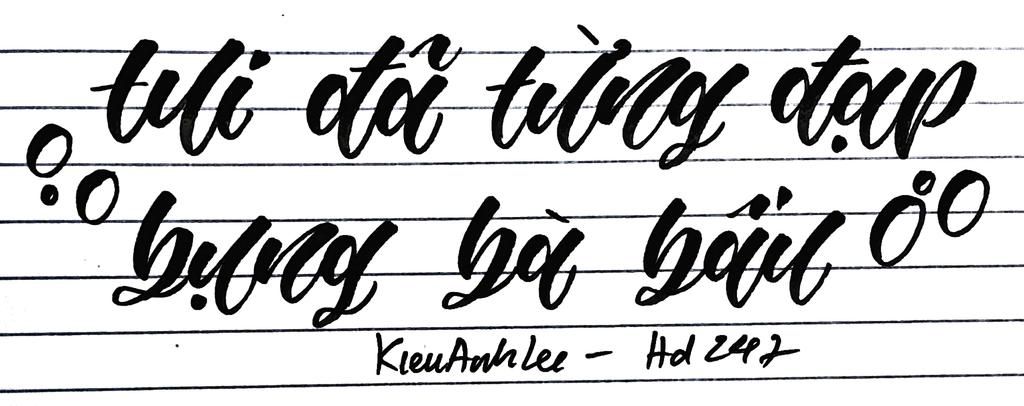 tui đã từng đạp
bụng bà bầu
KieuAnhLee - Hd 247